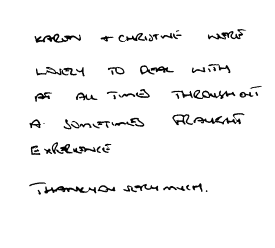 KAREN + CHRISTINE WERE
LOVELY TO DEAL WITH
AT ALL TIMES THROUGHOUT
A SOMETIMES FRAUGHT
EXPERIENCE
THANKYOU VERY MUCH.